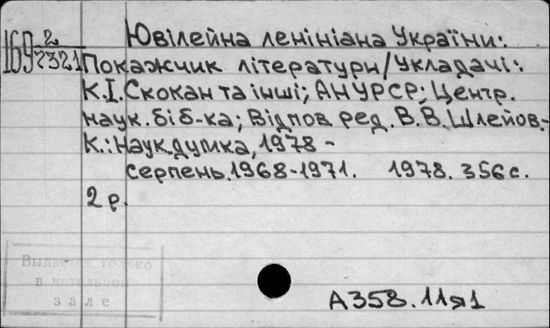 Ювілейна ленініана України:
169 2/2321
Покажчик літератури/Укладачі:
К.І. Скокан та інші; АН УРСР; Центр.
наук. біб-ка; Відпов ред. В.В. Шлейов.-
К.: Наук. думка, 1978 -
серпень. 1968-1971. 1978. 356 с.
2 р.
Выдается только
в читальном
зале
А358.11я1